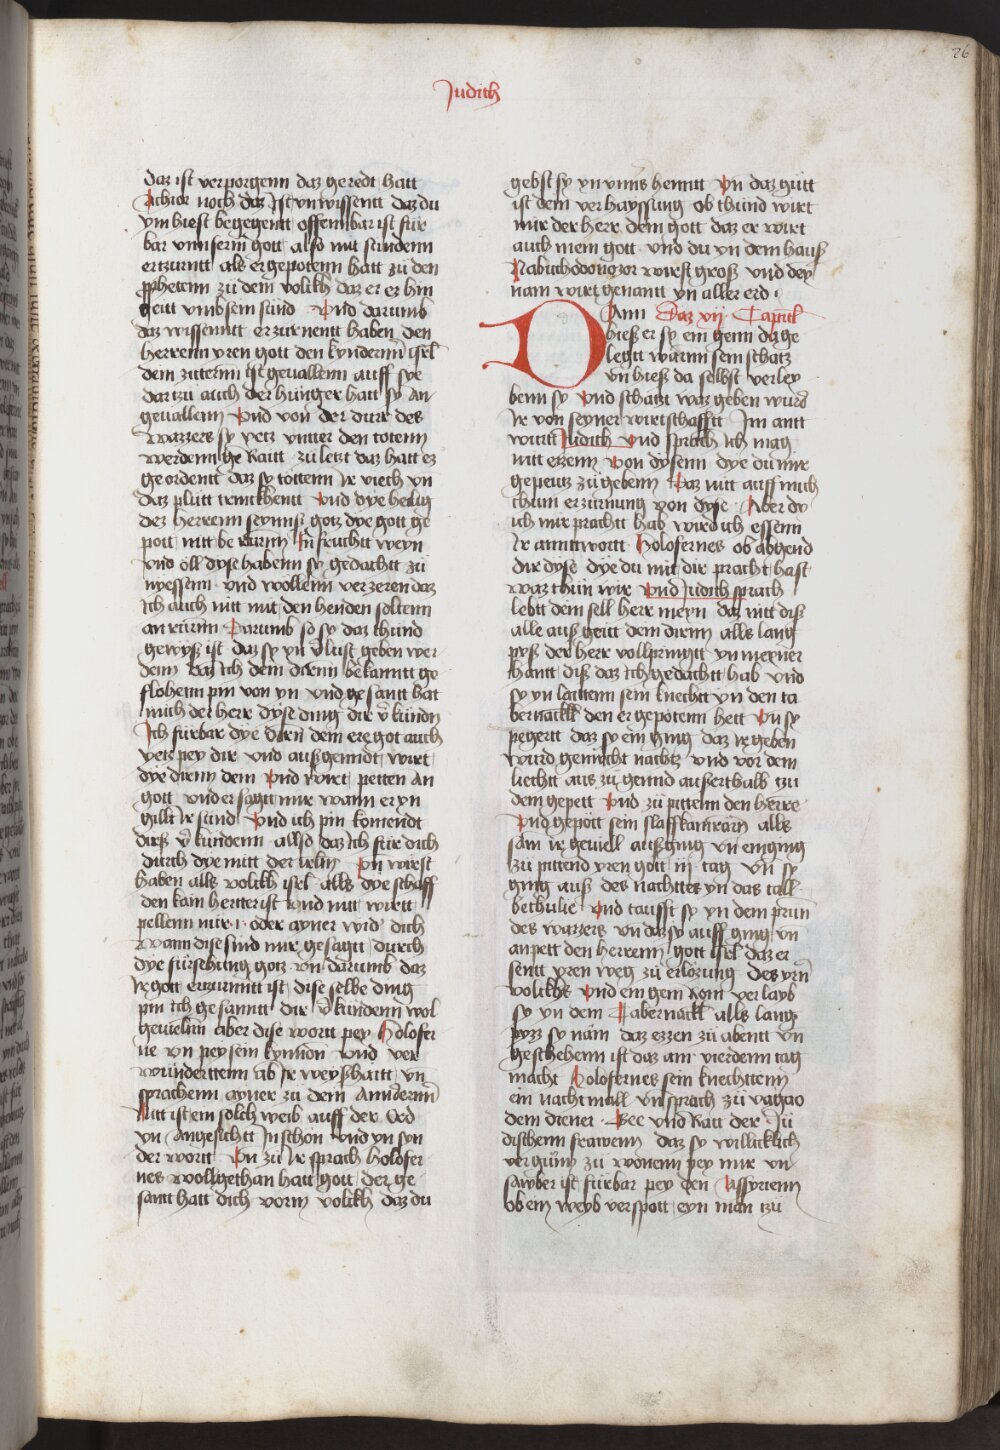 26
Judith
daz ist verporgenn daz geredt hatt
Achior noch daz Ist unwissentt daz du
ym hiest begegentt offennbar ist für
bar unnserm gott also mit sundenn
ertzurntt als er gepotenn hatt zů den
pphetenn zů dem volkh daz er ez hin
geitt umb sein sünd Und darumb
daz wissenntt erzürnentt haben den
herrenn yren gott den kynderm̄ isrl
dem zittern ist gevallenn auff sye
dartzu auch der hünger hatt sy An
gevallenn Und von der dürr des
wazzers sy yetz unter den totenn
werdenn geRaitt zu letzt daz hatt ez
geordentt daz sy tottenn Ir viech vn
daz plutt trinckhentt Und dye heilig
dez herrenn seynnß gotz dye gott ge
pott nitt be rürnn In fruchtt weyn
Und öll dyse habenn sy gedachtt zů
nyessenn und wollenn verzeren daz
Ich auch nitt mit den henden soltenn
an rürnn Darumb so sy daz thünd
gewyß ist daz sy yn v̄lust geben wer
denn Daz Ich dein dirnn bekanntt ge
flohenn pin von yn und gesantt hat
mich der herr dyse ding dir v̄kündn
Ich fürbar dye dirn dein ere got auch
yetz pey dir und außgeendt wirt
dye dirnn dein Und wirt petten An
gott und er sagtt mir wann er yn
gillt Ir sünd Und ich pin komendt
dieß v̄kündenn allso daz Ich für dich
durch dye mitt der irlm̄ Vn wirst
haben alls volkh isrl alls dye schaff
den kain hertter ist Und nitt wirtt
pellenn mir i oder ayner wid' dich
Wann dise sind mir gesagtt durch
dye fürsehung gotz vn darumb daz
Ir gott ertzürnntt ist dise selbe ding
pin Ich gesanntt dir v̄kündenn wol
gevielnn aber dise wortt pey Holofer
ne vn pey sein kynndn Und ver
wunderttenn ab Ir weyßhaitt vn
sprachenn ayner zů dem Anndernn
Nitt ist ein solch weib auff der Erd
yn Angesichtt In schön Und yn syn
der wortt Vn zů Ir sprach Holofer
nes wollgethan hatt gott der ge
santt hatt dich vorm volkh daz du
gebst sy yn unns henntt Vn daz gütt
ist dein verhayssung ob thünd wirt
mir der herr dein gott daz er wirt
auch mein gott und du yn dem hauß
Nabuchodonozor wirst groß und dey
nam wirt genantt yn aller erd
DAnn Daz xij Capittl
hieß er sy ein genn da ge
legtt warnn sein schatz
vn hieß da selbst verley
benn sy Und schatzt waz geben wurd
Ir von seyner wirtschafftt Im antt
wurtt Judith Und sprach Ich mag
nitt ezzenn von dysenn dye dü mir
gepeutz zů gebenn Daz nitt auff mich
chum erzürnung von dyse Aber dy
ich mir prachtt hab wird ich essenn
Ir anntwortt Holofernes ob abgend
dir dyse dye du mit dir pracht hast
waz thün wir Und Judith sprach
lebtt dein sell herr meyn daz nitt diß
alle auß geitt dein dirnn alls lang
pyß der herr vollpringtt yn meyner
hantt diß daz Ich gedachtt hab Und
sy yn laittenn sein knechtt yn den ta
bernackl den er gepotenn hett Vn sy
pegertt daz sy ein ging daz ir geben
würd gemächt nachtz und vor dem
liechtt aus zů gennd ausserthalb tzü
dem gepett Und zů pittenn den herre
Und gepött sein slaffkamrärn alls
sam ir geviell außging vn einging
zů pittend yren gott iij tag Vn sy
ging auß des nachttes yn das tall
Bethulie Und taufft sy yn dem prun
des wazzers vn da sy auff ging vn
anpett den herrenn gott isrl daz er
sentt yren weg zů erlözung des yrn̄
volkhs Und ein genn Rom verlayb
sy yn dem Tabernackl alls lang
pyzz sy näm daz ezzen zů abentt vn
geschehenn ist daz am vierdenn tag
macht Holofernes sein knechttenn
ein nachtmall vn sprach zů vagao
dem diener Gee Und Ratt der Ju
dischenn frawenn daz sy willicklich
vergünn zů wonenn pey mir vn
sawber ist fürbar pey den Assyrienn
ob ein weyb verspott eyn man tzü